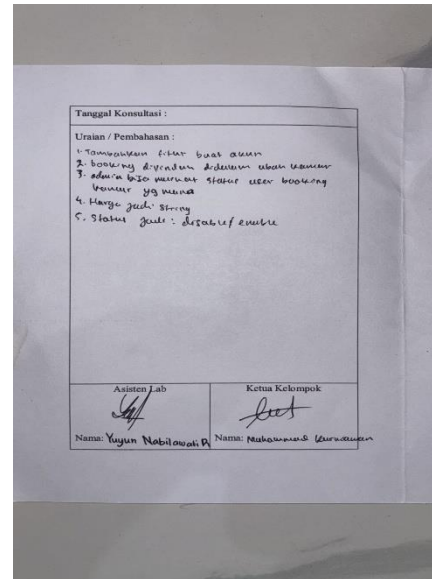 Tanggal Konsultasi :
Uraian / Pembahasan :
1. Tambahkan fitur buat akun
2. booking dipindah didalam ubah kamar
3. admin bisa melihat status user booking
kamar yg mana
4. Harga jadi string
5. Status jadi : disable/ enable
Asisten Lab
Ketua Kelompok
Nama: Yuyun Nabilawati R
Nama: Muhammad Kurniawan